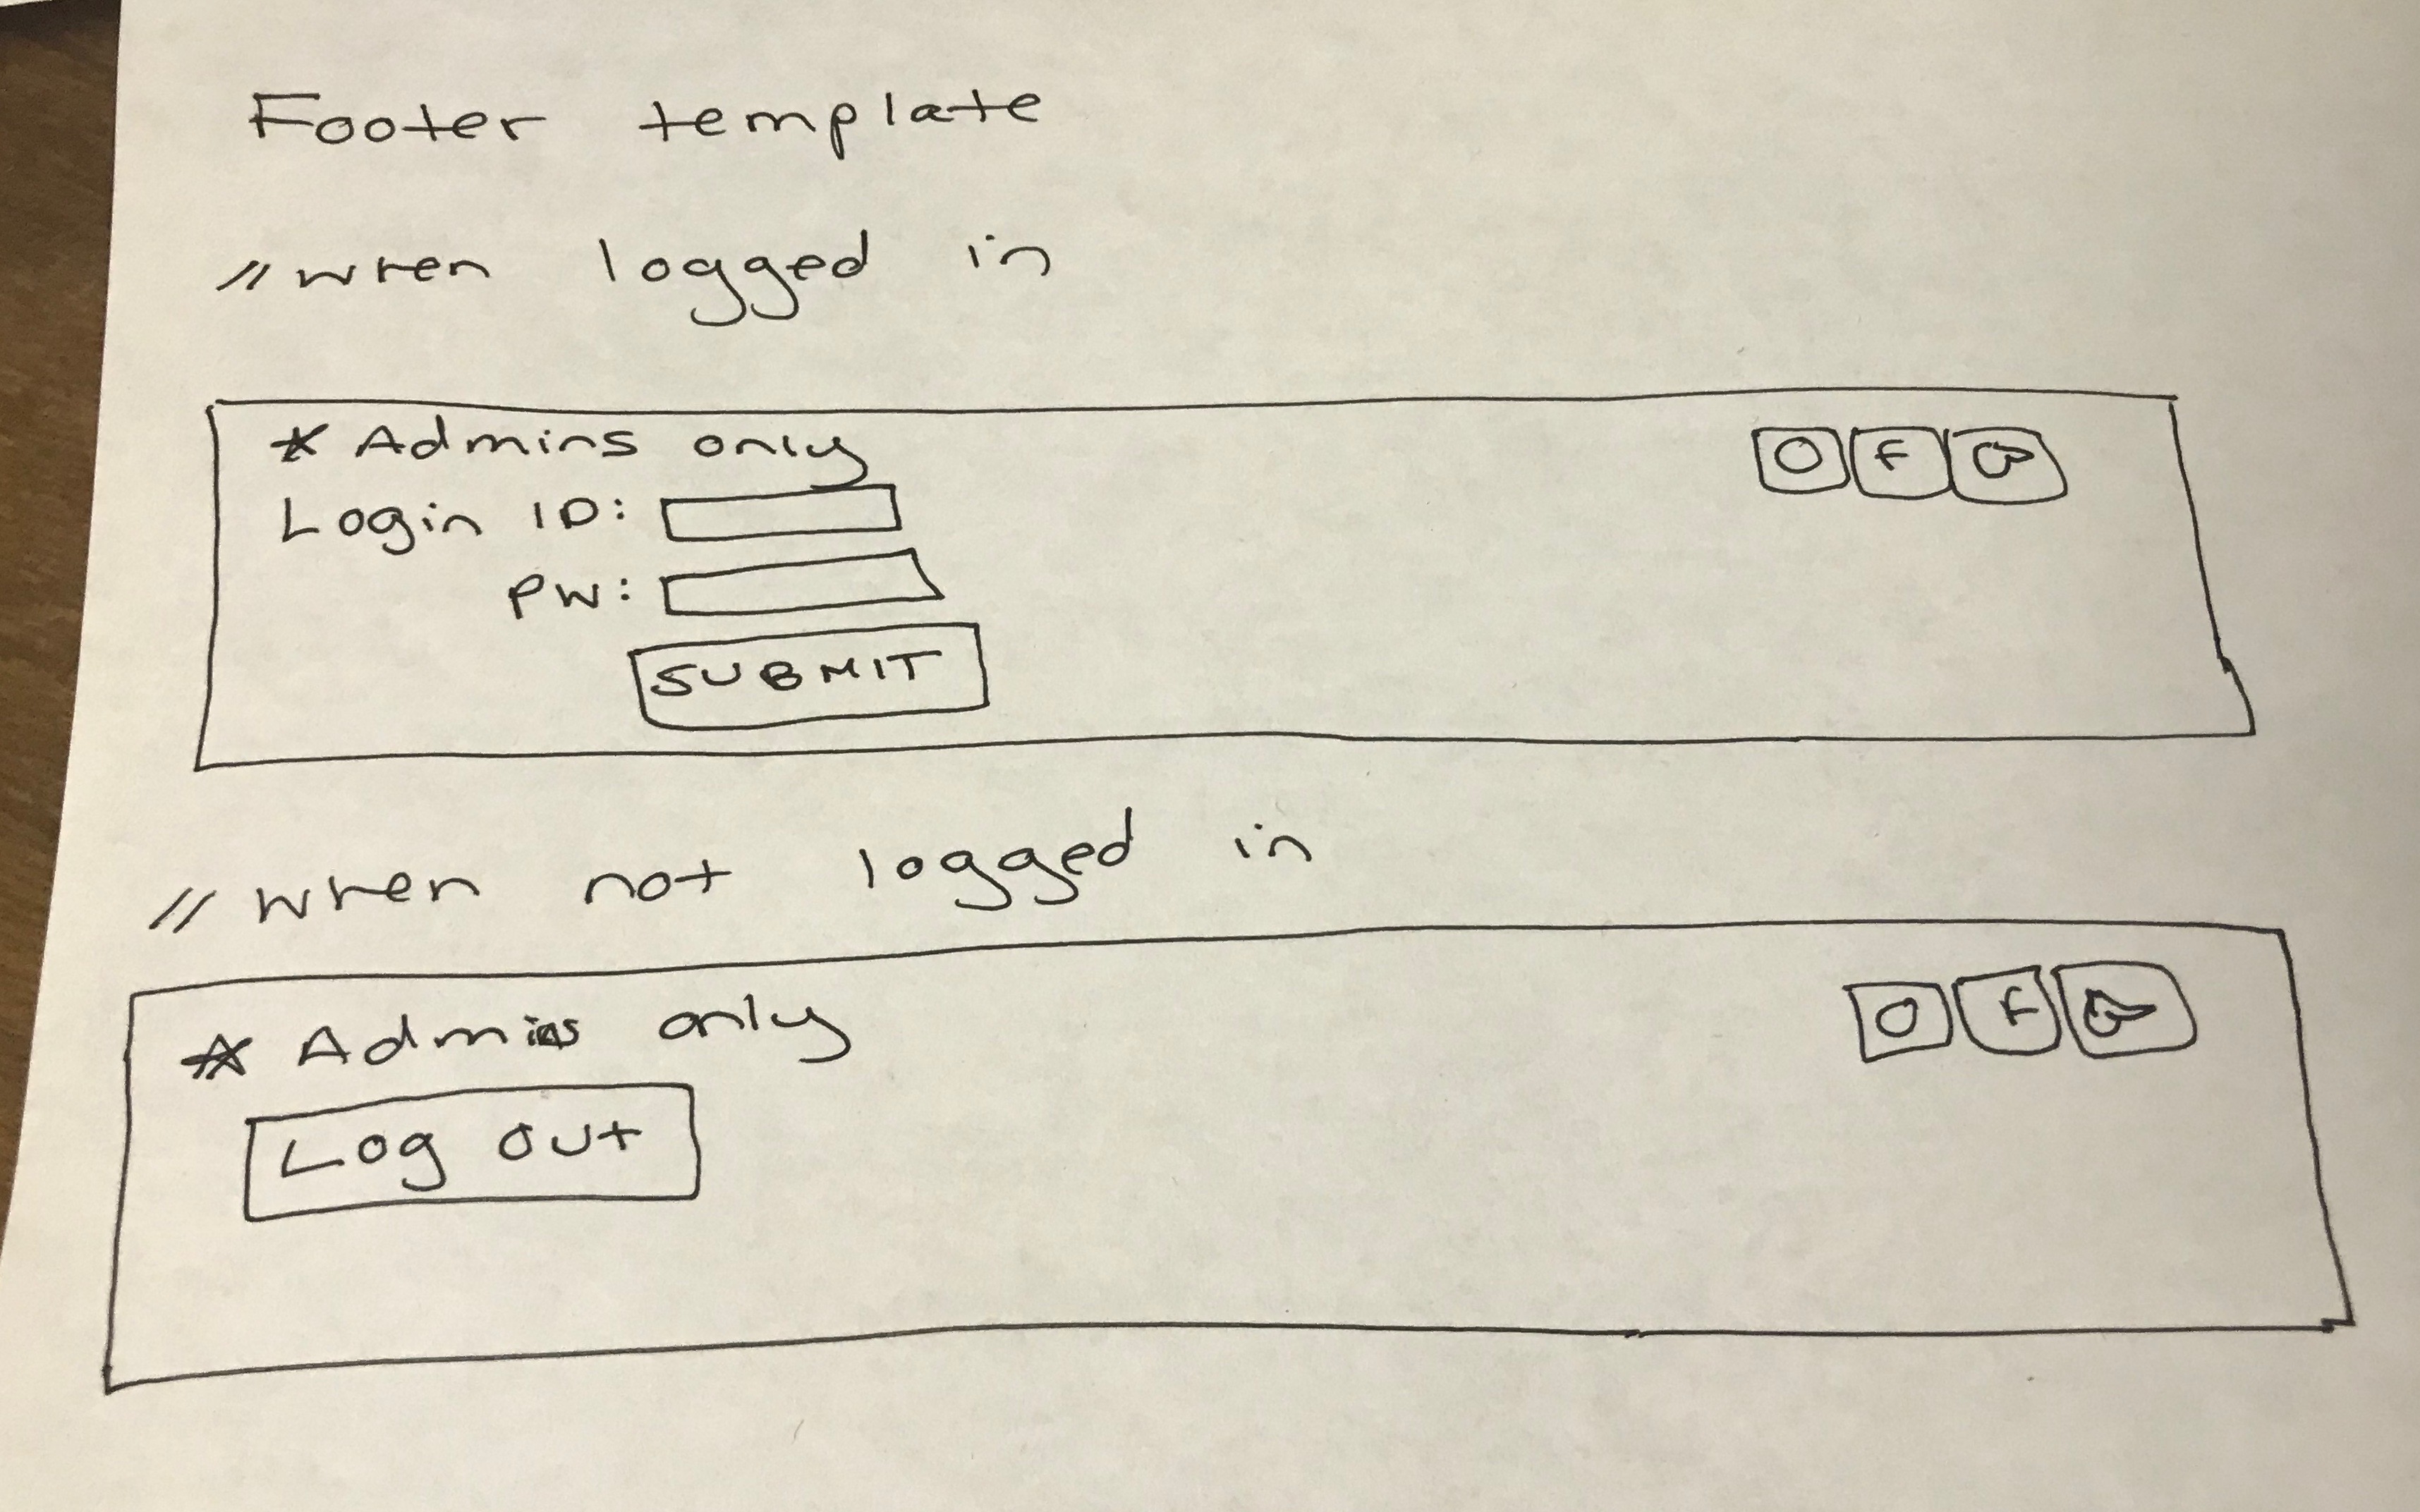 Footer template
// when logged in
* Admins only
Login ID:
PW:
SUBMIT
F
// when not logged in
* Admins only
Log out
F